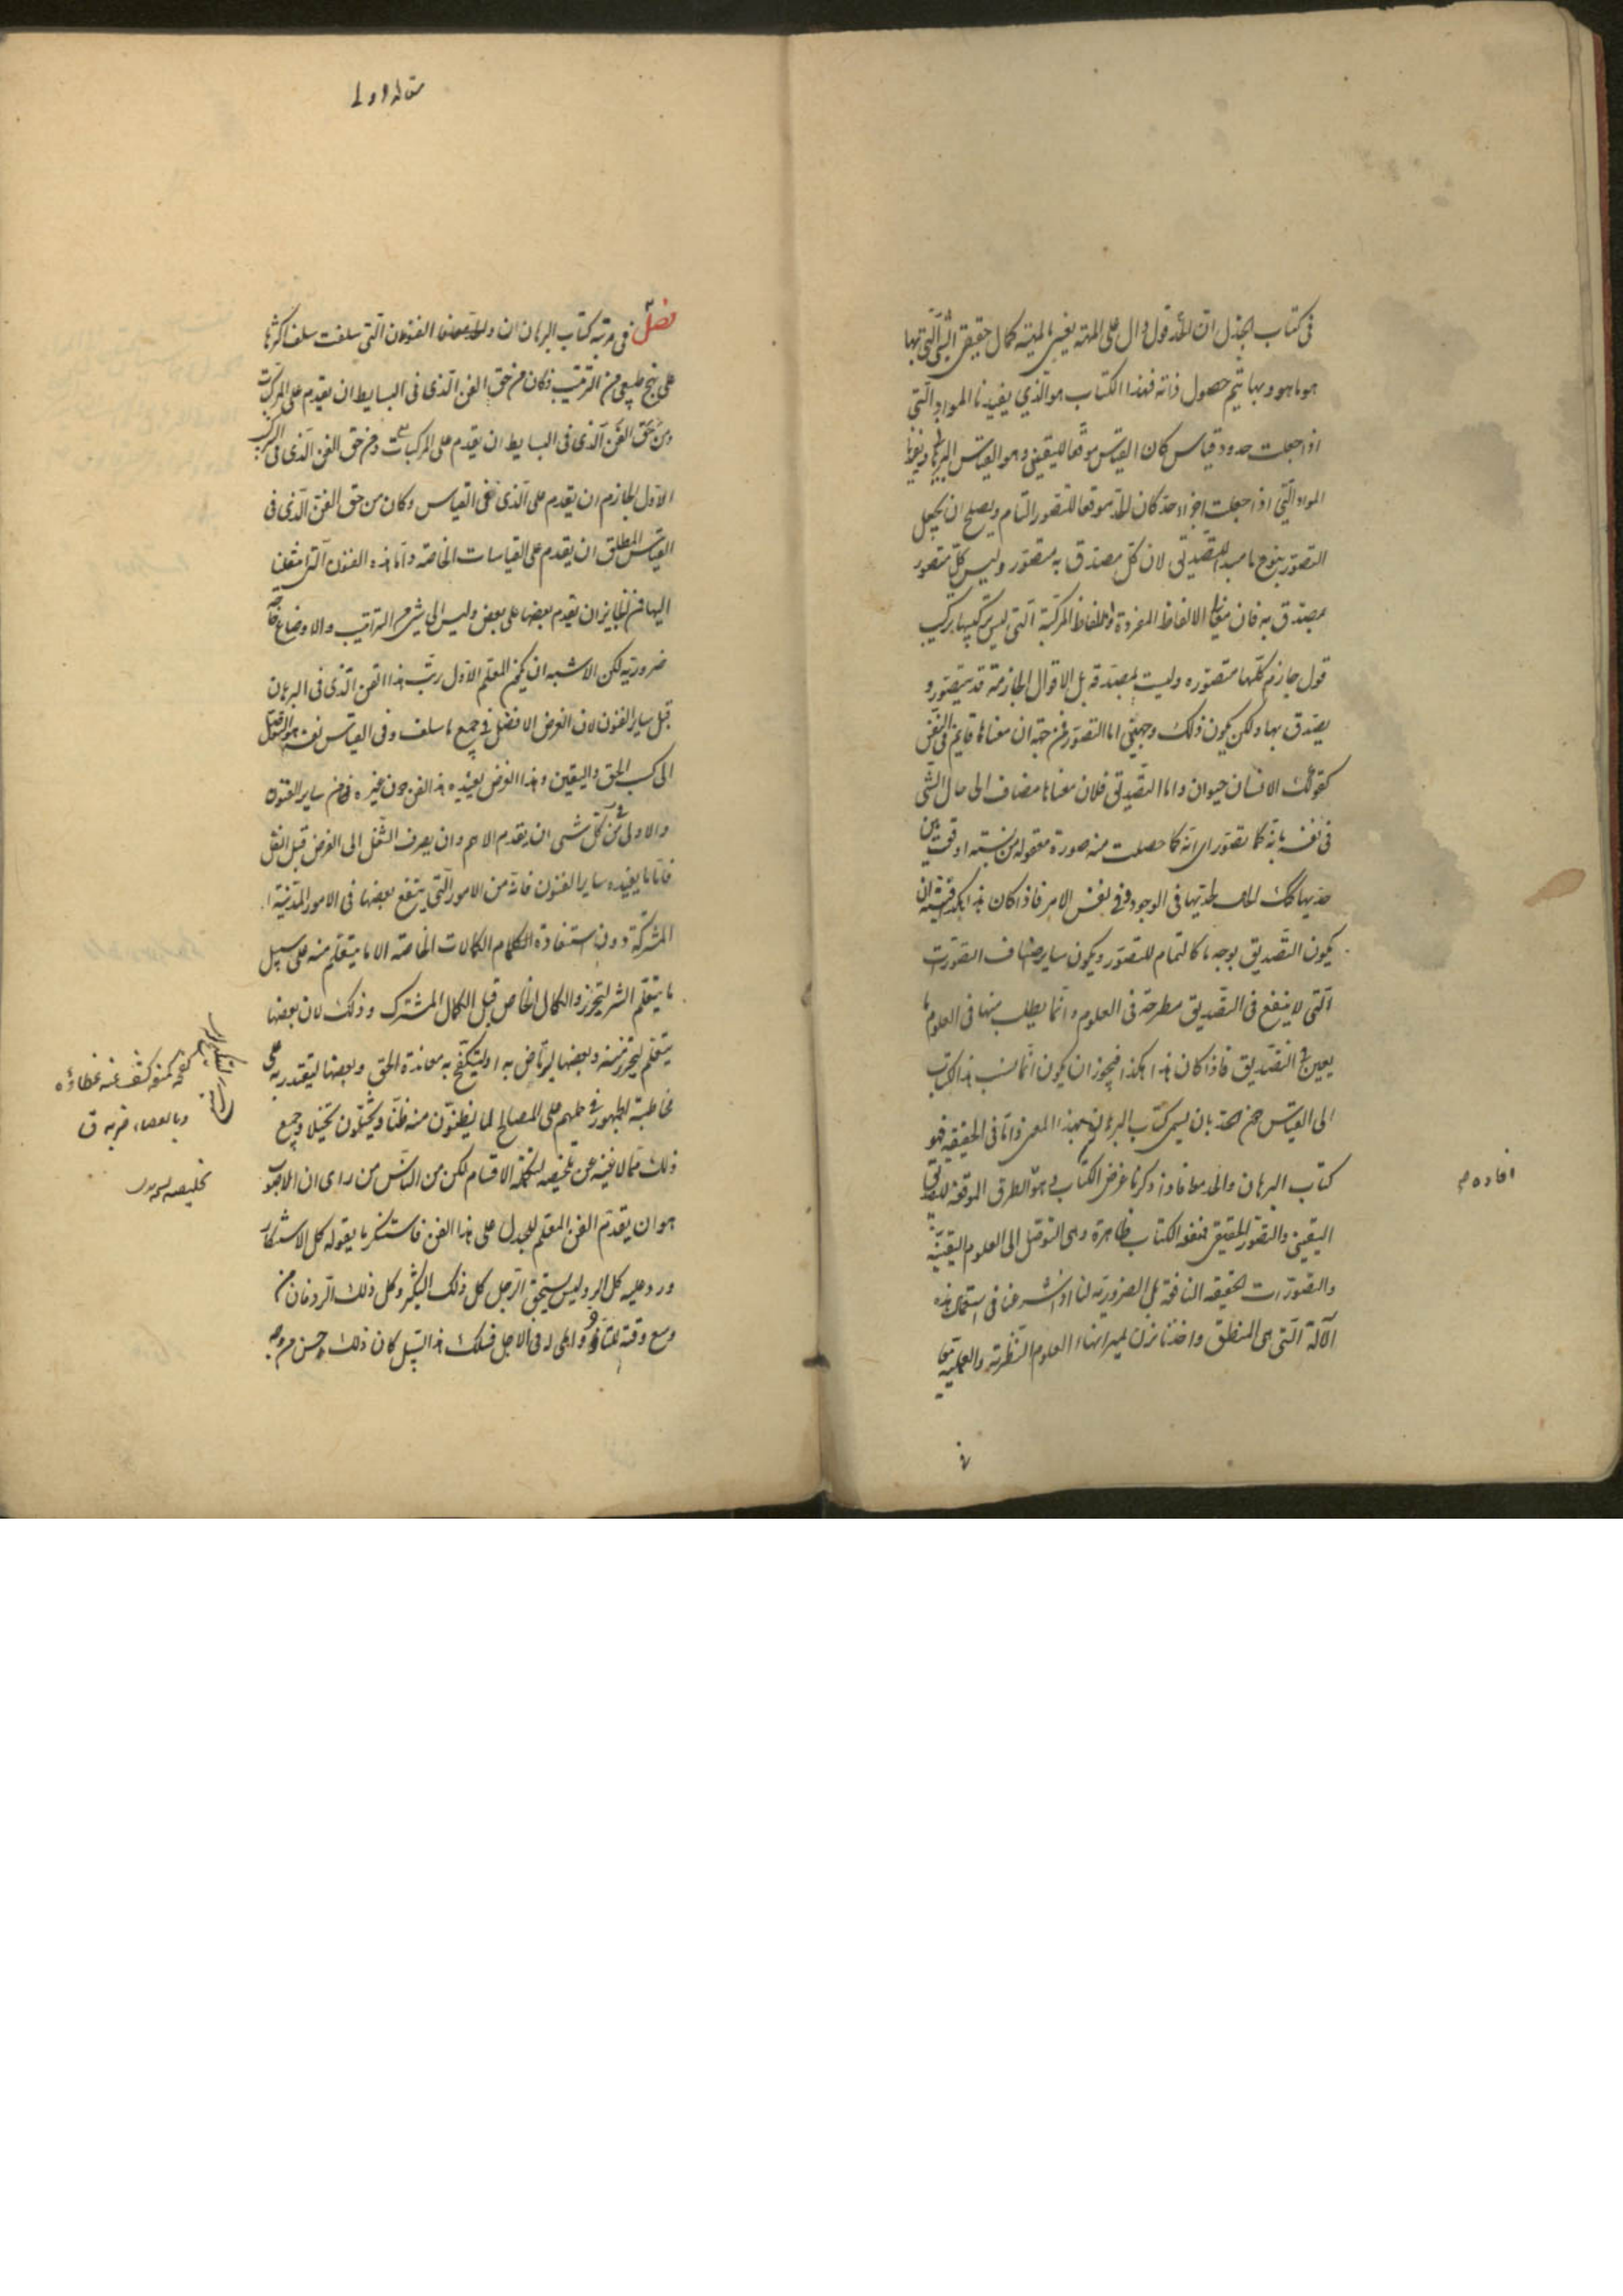 في كتاب الجدل ان الحد قول دال على المهية يعني بالمهية كمال حقيقة الشي التي بها
هو ما هو وبها يتم حصول ذاته فهذا الكتاب هو الذي يفيدنا المواد التي
اذا جعلت حدود قياس كان القياس موقعا لليقين وهو القياس البرهاني ويفيدنا
المواد التي اذا جعلت اجزاء حد كان الحد موقعا للتصور التام ويصلح ان يجعل
التصور بنوع ما مبدا للتصديق لان كل مصدق به متصور وليس كل متصور
بمصدق به فان معاني الالفاظ المفردة والالفاظ المركبة التي ليس تركيبها تركيب
قول جازم كلها متصورة وليست بمصدقة بل الاقوال الجازمة قد تتصور و
يصدق بها ولكن يكون ذلك وجهين اما التصور فمن جهة ان معناها قائم في النفس
كقولك الانسان حيوان واما التصديق فلان معناها مضاف الى حال الشي
في نفسه بانه كما تصور اي انه كما حصلت منه صورة معقولة من نسبة اوقعت بين
حديها كذلك الحال لحديها في الوجود وفي نفس الامر فاذا كان هذا هكذا فيشبه ان
يكون التصديق بوجه ما كالتمام للتصور ويكون ساير اصناف التصورات
التي لا ينفع في التصديق مطرحة في العلوم وانما يطلب منها في العلوم ما
يعين في التصديق فاذا كان هذا هكذا فيجوز ان يكون انما نسب هذا الكتاب
الى القياس دون الحد بان يسمى كتاب البرهان لهذا المعنى واما في الحقيقة فهو
كتاب البرهان والحد معا فاذ ذكرنا غرض الكتاب وهو الطرق الموقعة للتصديق
اليقيني والتصور الحقيقي فمنفعة الكتاب ظاهرة وهي التوصل الى العلوم اليقينية
والتصورات الحقيقية النافعة بل الضرورية لنا اذا شرعنا في استعمال هذه
الالة التي هي المنطق واخذنا نزن بميزانها العلوم النظرية والعملية معا
افاده
مقاله اولى
فصل في مرتبة كتاب البرهان ان الفنون التي سلفت سلف اكثرها
على نهج طبيعي من الترتيب فكان من حق الفن الذي في البسايط ان يقدم على المركبات
ومن حق الفن الذي في البسايط ان يقدم على المركبات ومن حق الفن الذي في التركيب
الاول الجازم ان يقدم على الذي في القياس وكان من حق الفن الذي في
القياس المطلق ان يقدم على القياسات الخاصة واما هذه الفنون التي ننتقل
اليها فمن الجايز ان يقدم بعضها على بعض وليس الى شي من التراتيب والاوضاع حاجة
ضرورية لكن الاشبه ان يكون المعلم الاول رتب هذا الفن الذي في البرهان
قبل ساير الفنون لان الغرض الافضل في جميع ما سلف وفي القياس نفسه هو التوصل
الى كسب الحق واليقين وهذا الغرض يفيده هذا الفن دون غيره من ساير الفنون
والاولى في كل شي ان يقدم الاهم وان يصرف الشغل الى الفرض قبل النفل
فاما ما يفيده ساير الفنون فانه من الامور التي ينتفع بعضها في الامور المدنية
المشتركة دون استفادة الكمالات الخاصة الا ما يتعلم منه على سبيل
ما يتعلم الشر ليتحرز والكمال الخاص قبل الكمال المشترك وذلك لان بعضها
يتعلم ليتحرز منه وبعضها ليرتاض به او ليكفح به معاندة الحق وبعضها ليقتدر به على
مخاطبة الجمهور في حملهم على المصالح لما يظنون منه ظنا ويتخيلون تخيلا وجميع
ذلك مما لا غنية عن تلخيصه لتكملة الاقسام لكن من الناس من راى ان الاصوب
هو ان يقدم الفن المعلم للجدل على هذا الفن فاستنكر ما يقوله كل الاستنكار
ورد عليه كل الرد وليس يستحق الرجل كل ذلك النكير وكل ذلك الرد فان من
وسع وقته للتاخير واملى له في الاجل فسلك هذا السبيل كان ذلك احسن من وجه
كشف عنه غطاؤه
وبالعصا ضربه ق